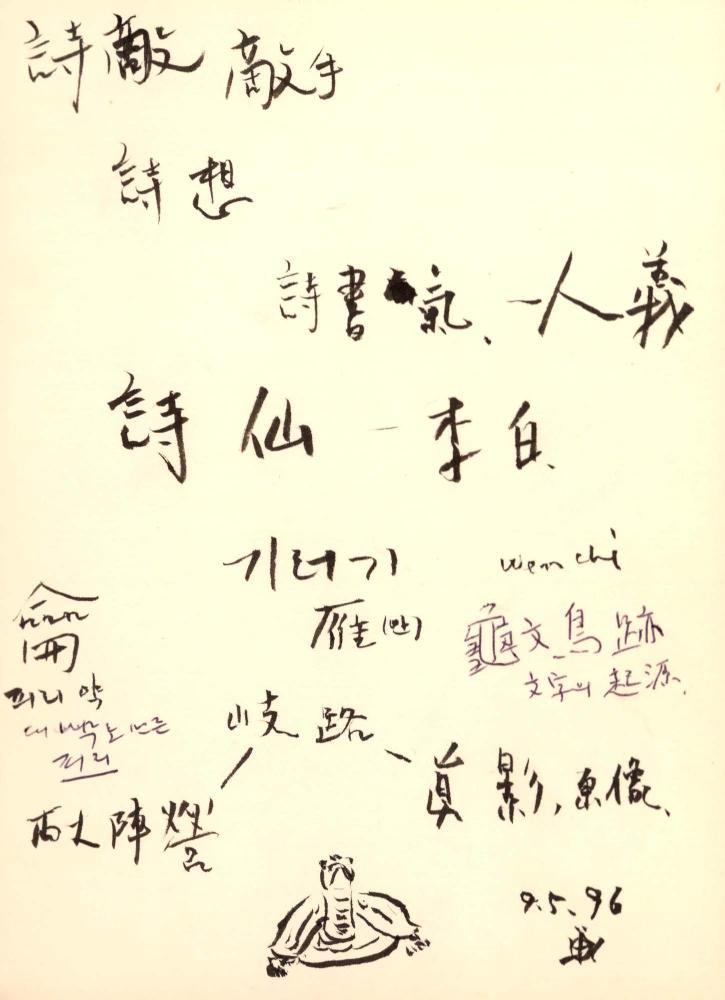 詩敵 敵手
詩想
詩書 氣、一人義
詩仙 - 李白
기러기
wen chi
雁(안)
龠
龜文 鳥跡
文字의 起源
피리 약
대
피리
岐路
兩大陣營
眞影,
9.5.96